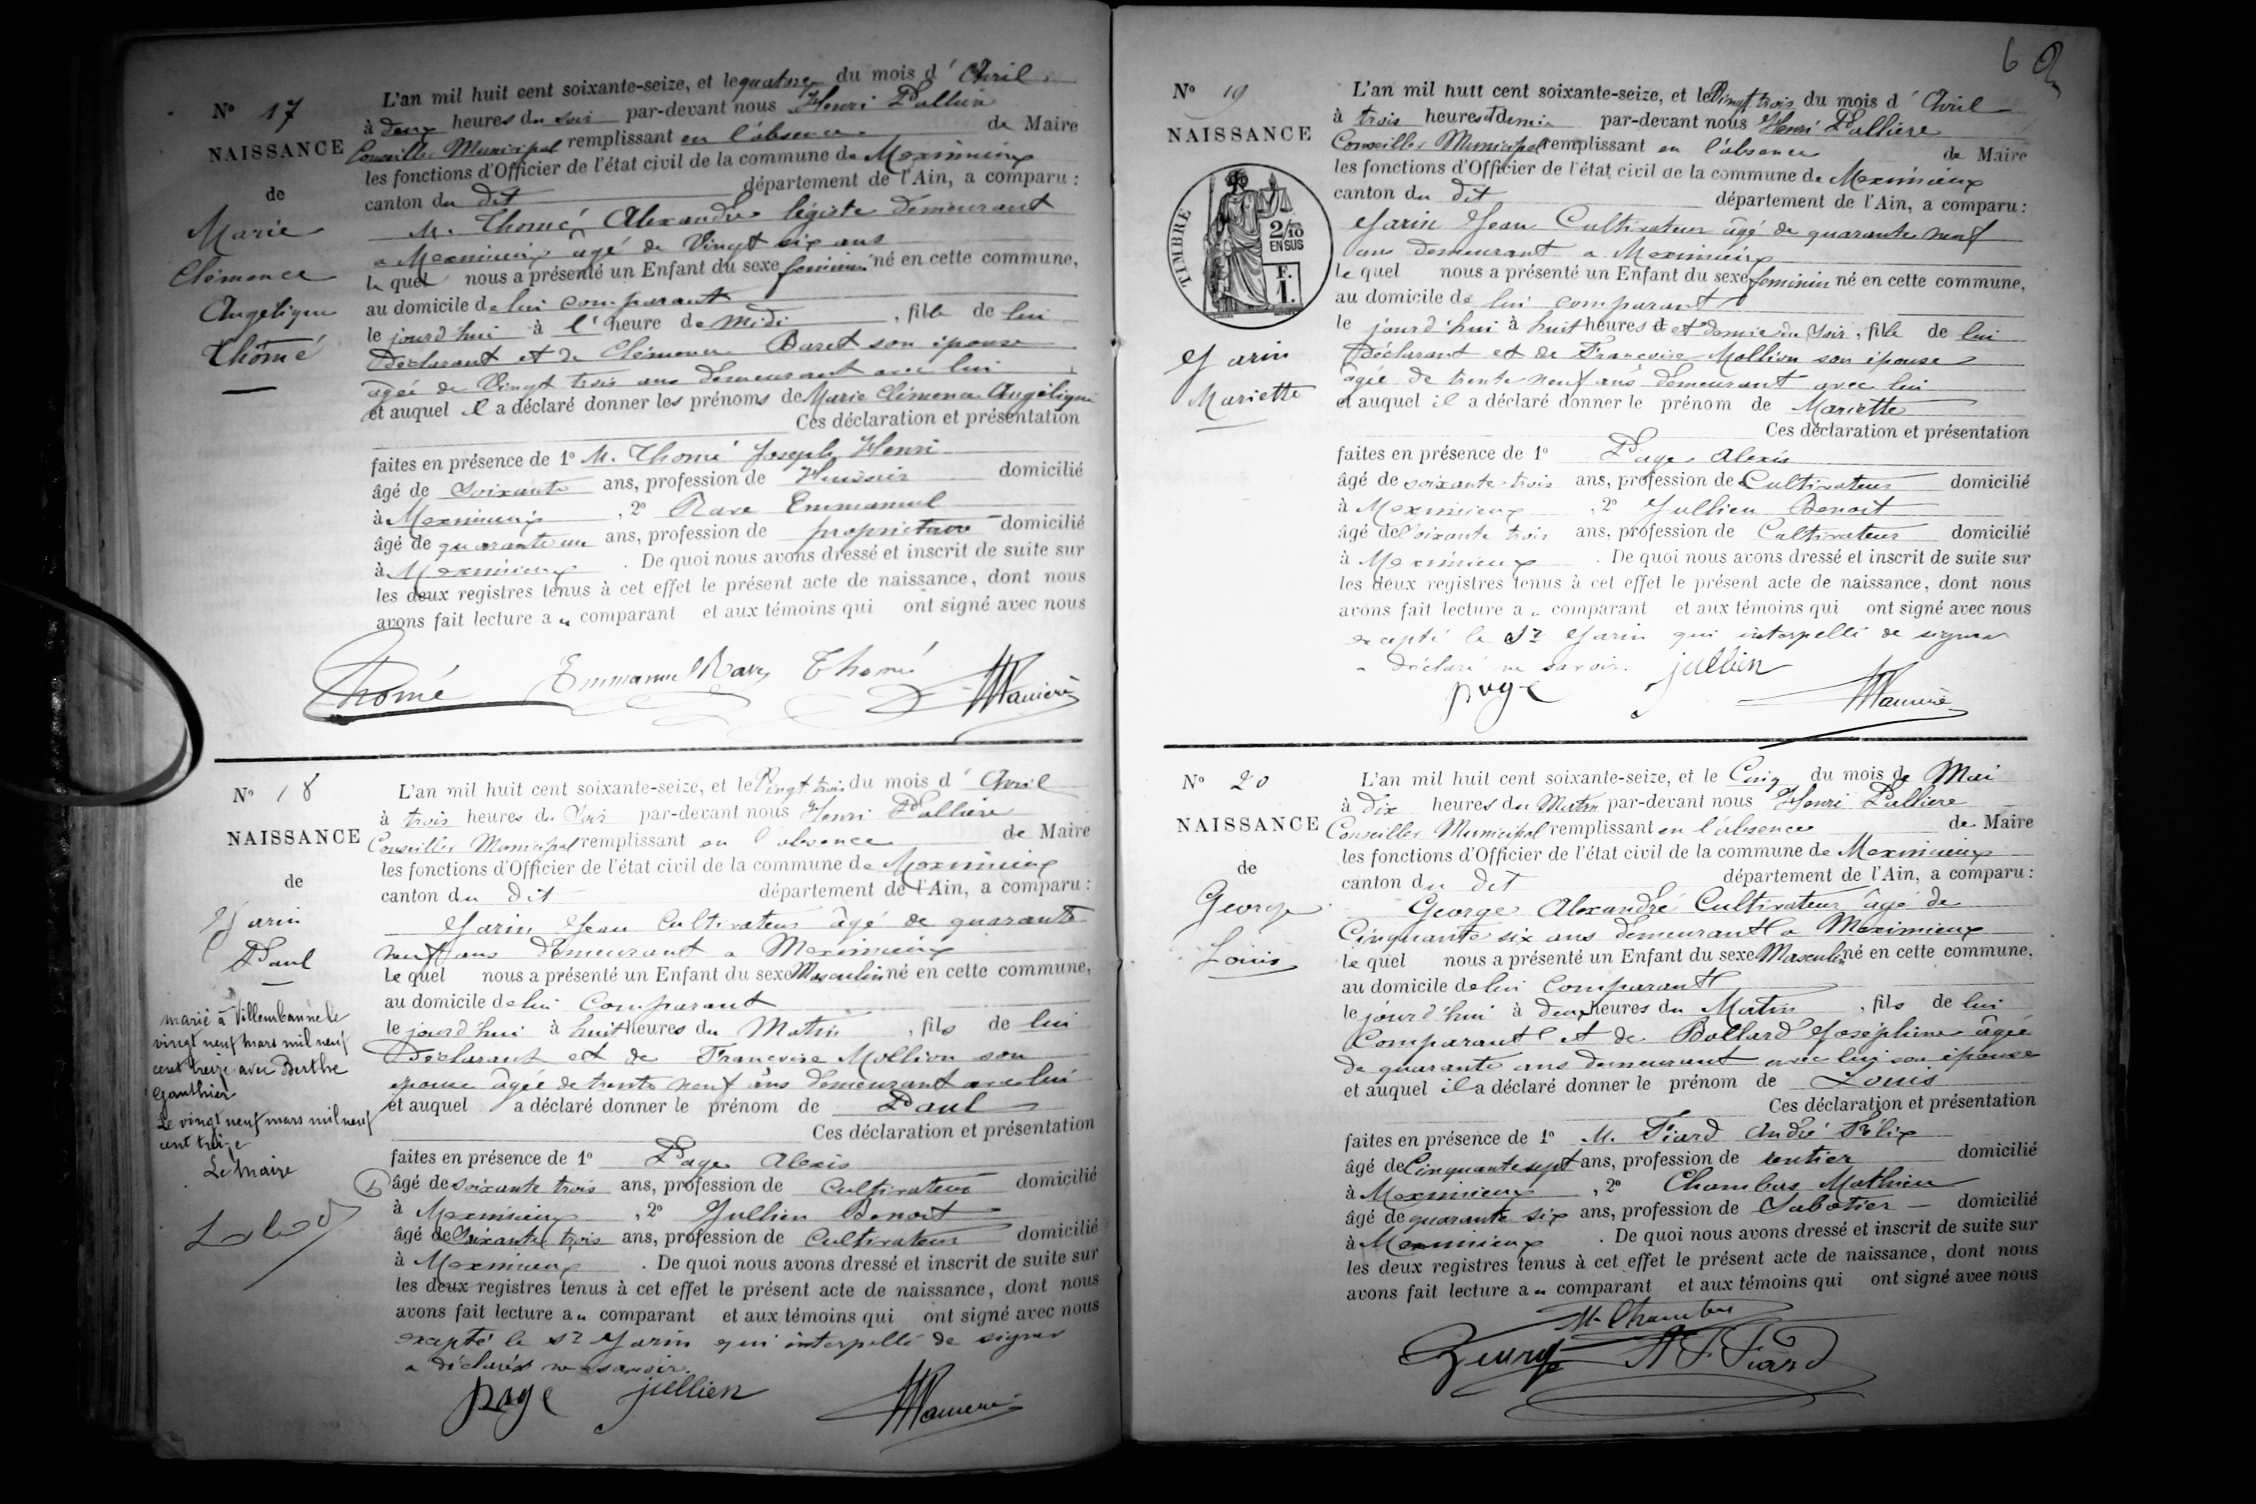 N° 17
NAISSANCE
de
Marie
Clémence
Angélique
Thomé
L'an mil huit cent soixante-seize, et le quatorze du mois d'Avril
à deux heures du soir par-devant nous Henri Pallière
Conseiller Municipal remplissant en l'absence de Maire
les fonctions d'Officier de l'état civil de la commune de Meximieux
canton du dit département de l'Ain, a comparu :
M. Thomé Alexandre légiste demeurant
a Meximieux âgé de Vingt six ans
le quel nous a présenté un Enfant du sexe féminin né en cette commune,
au domicile de lui comparant
le jourd'hui à l'heure de midi, fille de lui
Déclarant et de Clémence Baret son épouse
agée de Vingt trois ans demeurant avec lui
et auquel il a déclaré donner les prénoms de Marie Clémence Angélique
Ces déclaration et présentation
faites en présence de 1° M. Thomé Joseph Henri
âgé de soixante ans, profession de Huissier domicilié
à Meximieux, 2° Rave Emmanuel
âgé de quarante un ans, profession de propriétaire domicilié
à Meximieux. De quoi nous avons dressé et inscrit de suite sur
les deux registres tenus à cet effet le présent acte de naissance, dont nous
avons fait lecture au comparant et aux témoins qui ont signé avec nous
Thomé Emmanuel Rave Thomé
N° 18
NAISSANCE
de
Jarin
Paul
marié à Villeurbanne le
vingt neuf mars mil neuf
cent treize avec Berthe
Gauthier
Le vingt neuf mars mil neuf
cent treize
Le Maire
L'an mil huit cent soixante-seize, et le Vingt trois du mois d'Avril
à trois heures du soir par-devant nous Henri Pallière
Conseiller Municipal remplissant en l'absence de Maire
les fonctions d'Officier de l'état civil de la commune de Meximieux
canton du dit département de l'Ain, a comparu :
Jarin Jean Cultivateur âgé de quarante
neuf ans demeurant a Meximieux
Le quel nous a présenté un Enfant du sexe Masculin né en cette commune,
au domicile de lui Comparant
le jourd'hui à huit heures du Matin, fils de lui
Déclarant et de Françoise Mollion son
épouse âgée de trente neuf ans demeurant avec lui
et auquel a déclaré donner le prénom de Paul
Ces déclaration et présentation
faites en présence de 1° Page Alexis
âgé de soixante trois ans, profession de Cultivateur domicilié
à Meximieux, 2° Jullien Benoit
âgé de Soixante trois ans, profession de Cultivateur domicilié
à Meximieux. De quoi nous avons dressé et inscrit de suite sur
les deux registres tenus à cet effet le présent acte de naissance, dont nous
avons fait lecture au comparant et aux témoins qui ont signé avec nous
excepté le Sr Jarin qui interpellé de signer
a déclaré ne savoir.
page jullien
6
N° 19
NAISSANCE
TIMBRE
2/10
EN SUS
F.
1.
Jarin
Mariette
L'an mil huit cent soixante-seize, et le Vingt trois du mois d'Avril
à trois heures et demie par-devant nous Henri Pallière
Conseiller Municipal remplissant en l'absence de Maire
les fonctions d'Officier de l'état civil de la commune de Meximieux
canton du dit département de l'Ain, a comparu :
Jarin Jean Cultivateur âgé de quarante neuf
ans demeurant a Meximieux
le quel nous a présenté un Enfant du sexe féminin né en cette commune,
au domicile de lui comparant
le jourd'hui à huit heures et demie du soir, fille de lui
Déclarant et de Françoise Mollion son épouse
âgée de trente neuf ans demeurant avec lui
et auquel il a déclaré donner le prénom de Mariette
Ces déclaration et présentation
faites en présence de 1° Page Alexis
âgé de soixante trois ans, profession de Cultivateur domicilié
à Meximieux, 2° Jullien Benoit
âgé de Soixante trois ans, profession de Cultivateur domicilié
à Meximieux. De quoi nous avons dressé et inscrit de suite sur
les deux registres tenus à cet effet le présent acte de naissance, dont nous
avons fait lecture au comparant et aux témoins qui ont signé avec nous
excepté le Sr Jarin qui interpellé de signer
a déclaré ne savoir.
page jullien
N° 20
NAISSANCE
de
George
Louis
L'an mil huit cent soixante-seize, et le Cinq du mois de Mai
à Dix heures du Matin par-devant nous Henri Pallière
Conseiller Municipal remplissant en l'absence de Maire
les fonctions d'Officier de l'état civil de la commune de Meximieux
canton du dit département de l'Ain, a comparu :
George Alexandre Cultivateur âgé de
Cinquante six ans demeurant a Meximieux
le quel nous a présenté un Enfant du sexe Masculin né en cette commune,
au domicile de lui Comparant
le jourd'hui à deux heures du Matin, fils de lui
Comparant et de Bollard Joséphine âgée
de quarante ans demeurant avec lui son épouse
et auquel il a déclaré donner le prénom de Louis
Ces déclaration et présentation
faites en présence de 1° M. Fiard André Félix
âgé de Cinquante sept ans, profession de rentier domicilié
à Meximieux, 2° Chambus Mathieu
âgé de quarante six ans, profession de Sabotier domicilié
à Meximieux. De quoi nous avons dressé et inscrit de suite sur
les deux registres tenus à cet effet le présent acte de naissance, dont nous
avons fait lecture au comparant et aux témoins qui ont signé avec nous
M. Chambus
George A F Fiard